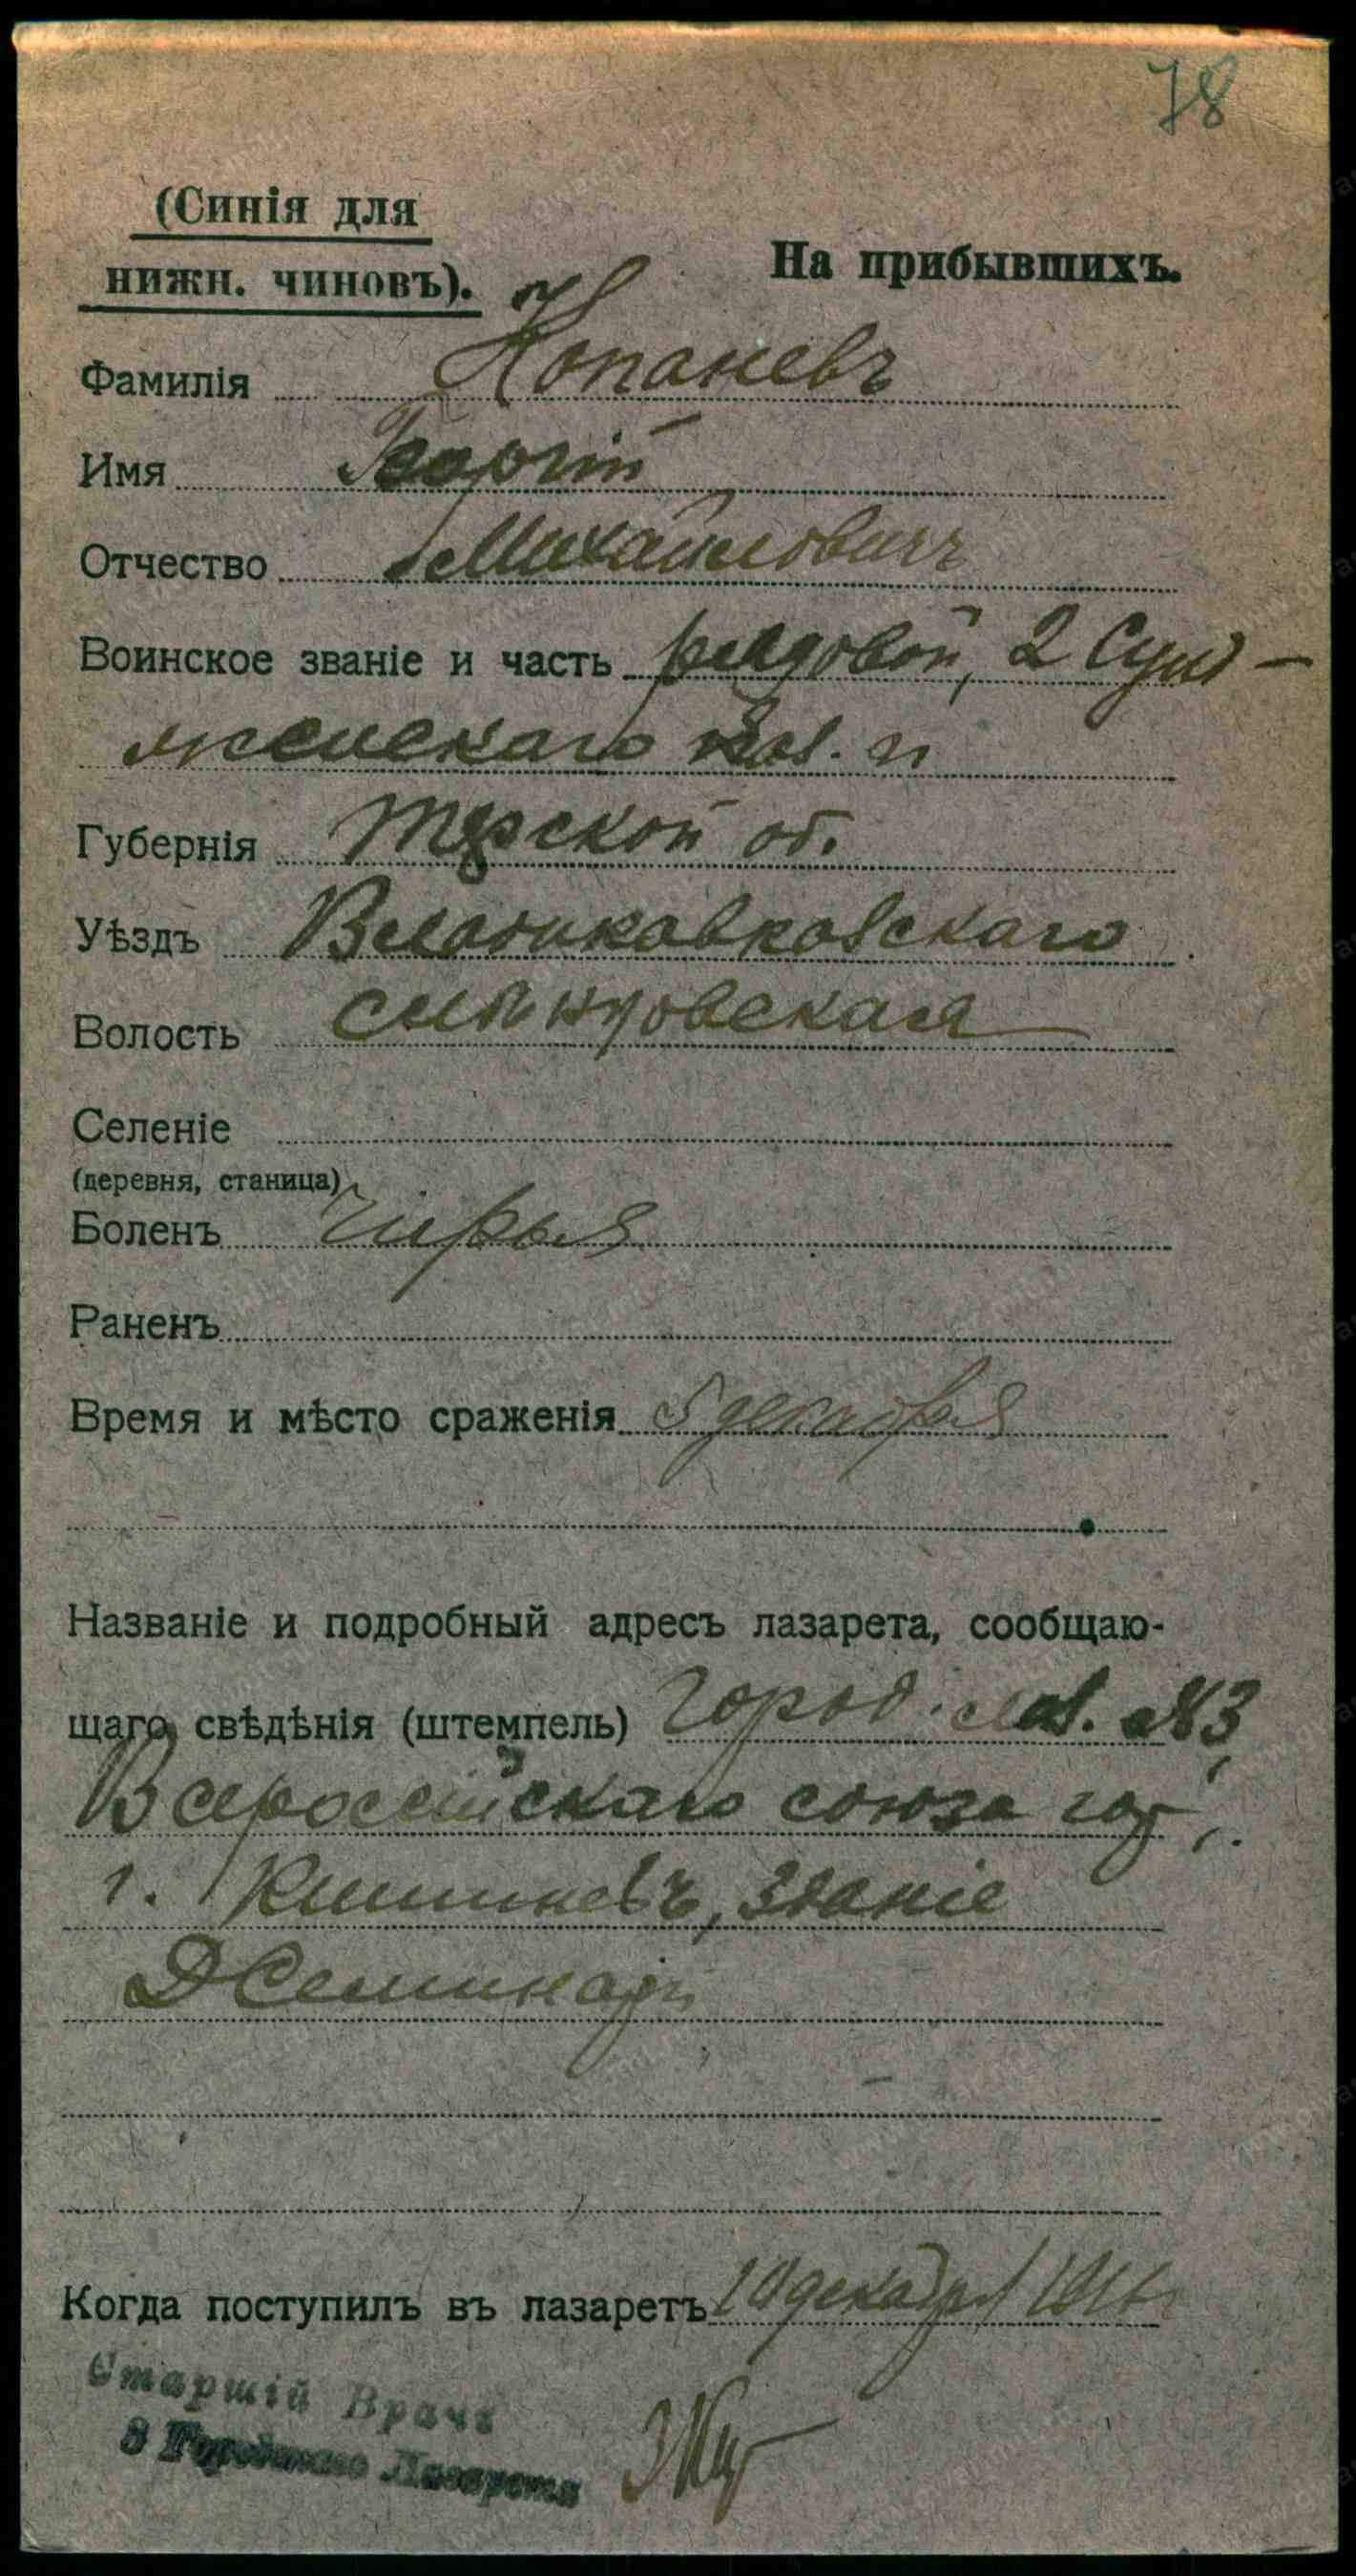 78
(Синія для
нижн. чиновъ).
На прибывшихъ.
Фамилія Копаневъ
Имя Георгій
Отчество Михайловичъ
Воинское званіе и часть рядовой, 2 Сун-
женскаго каз. п
Губернія Терской об.
Уѣздъ Владикавказскаго
Волость
Селеніе
(деревня, станица)
Боленъ Чирья
Раненъ
Время и мѣсто сраженія 5 декабря
Названіе и подробный адресъ лазарета, сообщаю-
щаго свѣдѣнія (штемпель) Город. лаз. №3,
Всероссійскаго союза гор.
г. Кишиневъ, зданіе
Д Семинарі
Когда поступилъ въ лазаретъ 10 декабря 1916
Старшій Врачъ
3 Городского Лазарета